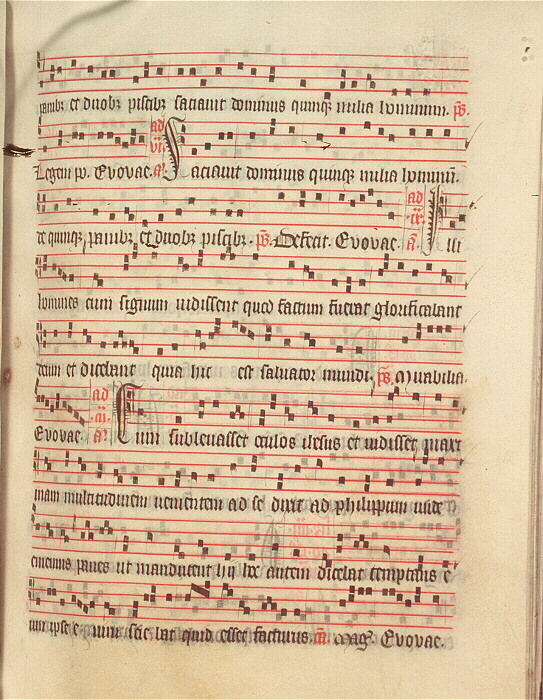 panibꝫ et duobꝫ piscibꝫ saciauit dominus quinqꝫ milia hominum. ps.
Legem pō. Evovae. ad vi. a. Saciauit dominus quinqꝫ milia hominū.
de quinqꝫ panibꝫ et duobꝫ piscibꝫ. ps. Defecit. Evovae. ad a. Illi
homines cum signum uidissent quod factum fuerat glorificabant
deum et dicebant quia hic est saluator mundi. ps. Mirabilia.
Evovae. ad a. Cum subleuasset oculos ihesus et uidisset maxi
mam multitudinem uenientem ad se dixit ad philippum unde
ememus panes ut manducent hij hoc autem dicebat temptans e
um ipse e nim scie bat quid esset facturus. Mag. Evovae.